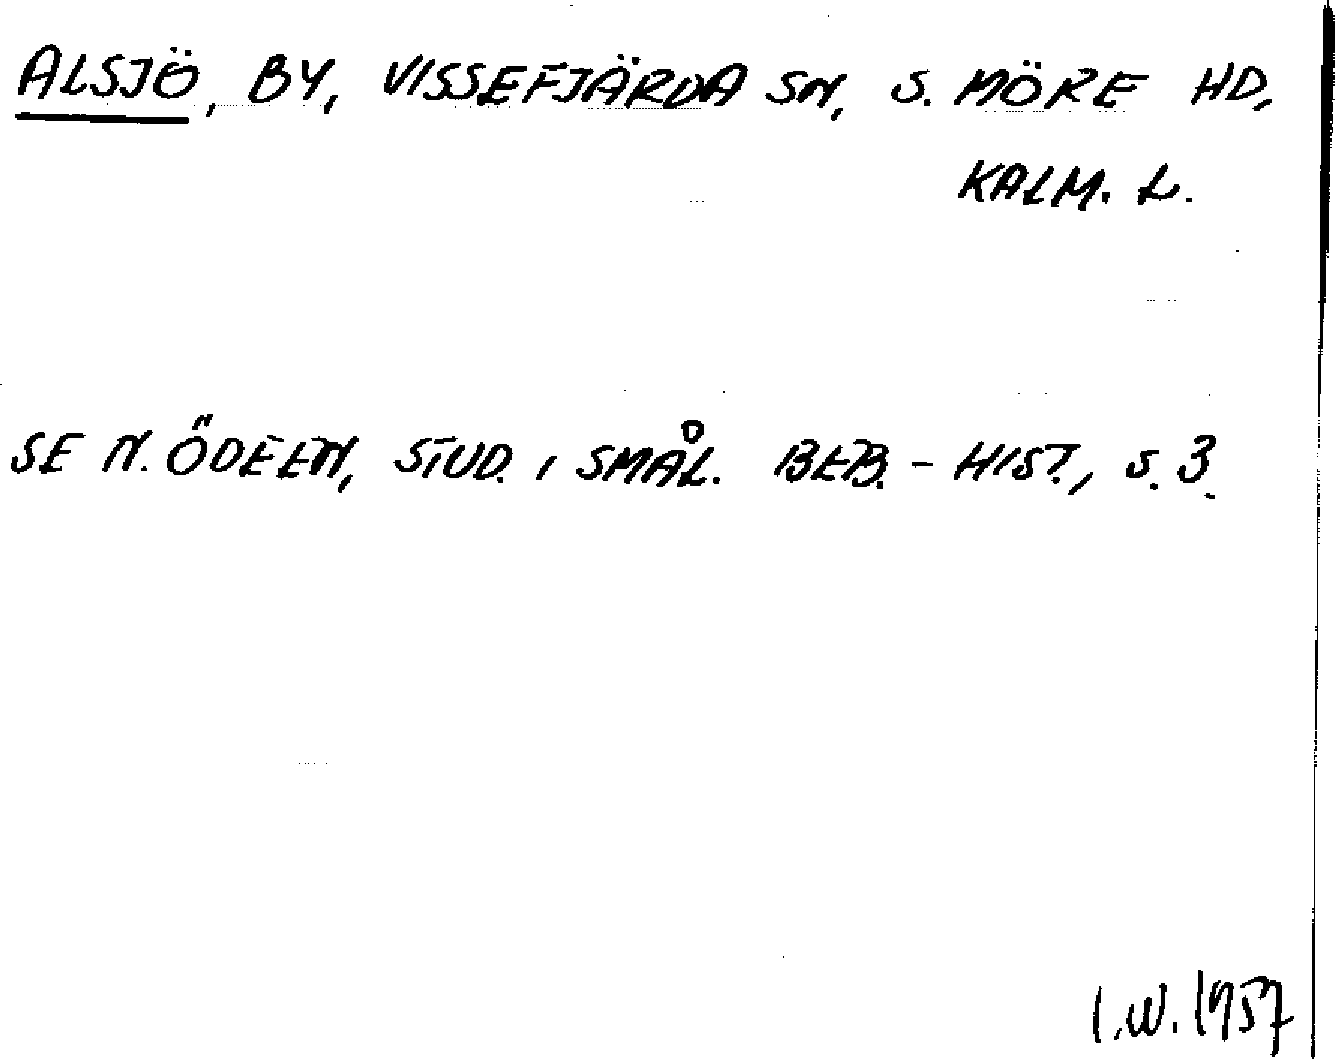 ALSJÖ, BY, VISSEFJÄRDA SN, S. MÖRE HD,
KALM. L.
SE N. ÖDEEN, STUD. I SMÅL. BEB.-HIST., S. 3.
I.W. 1957